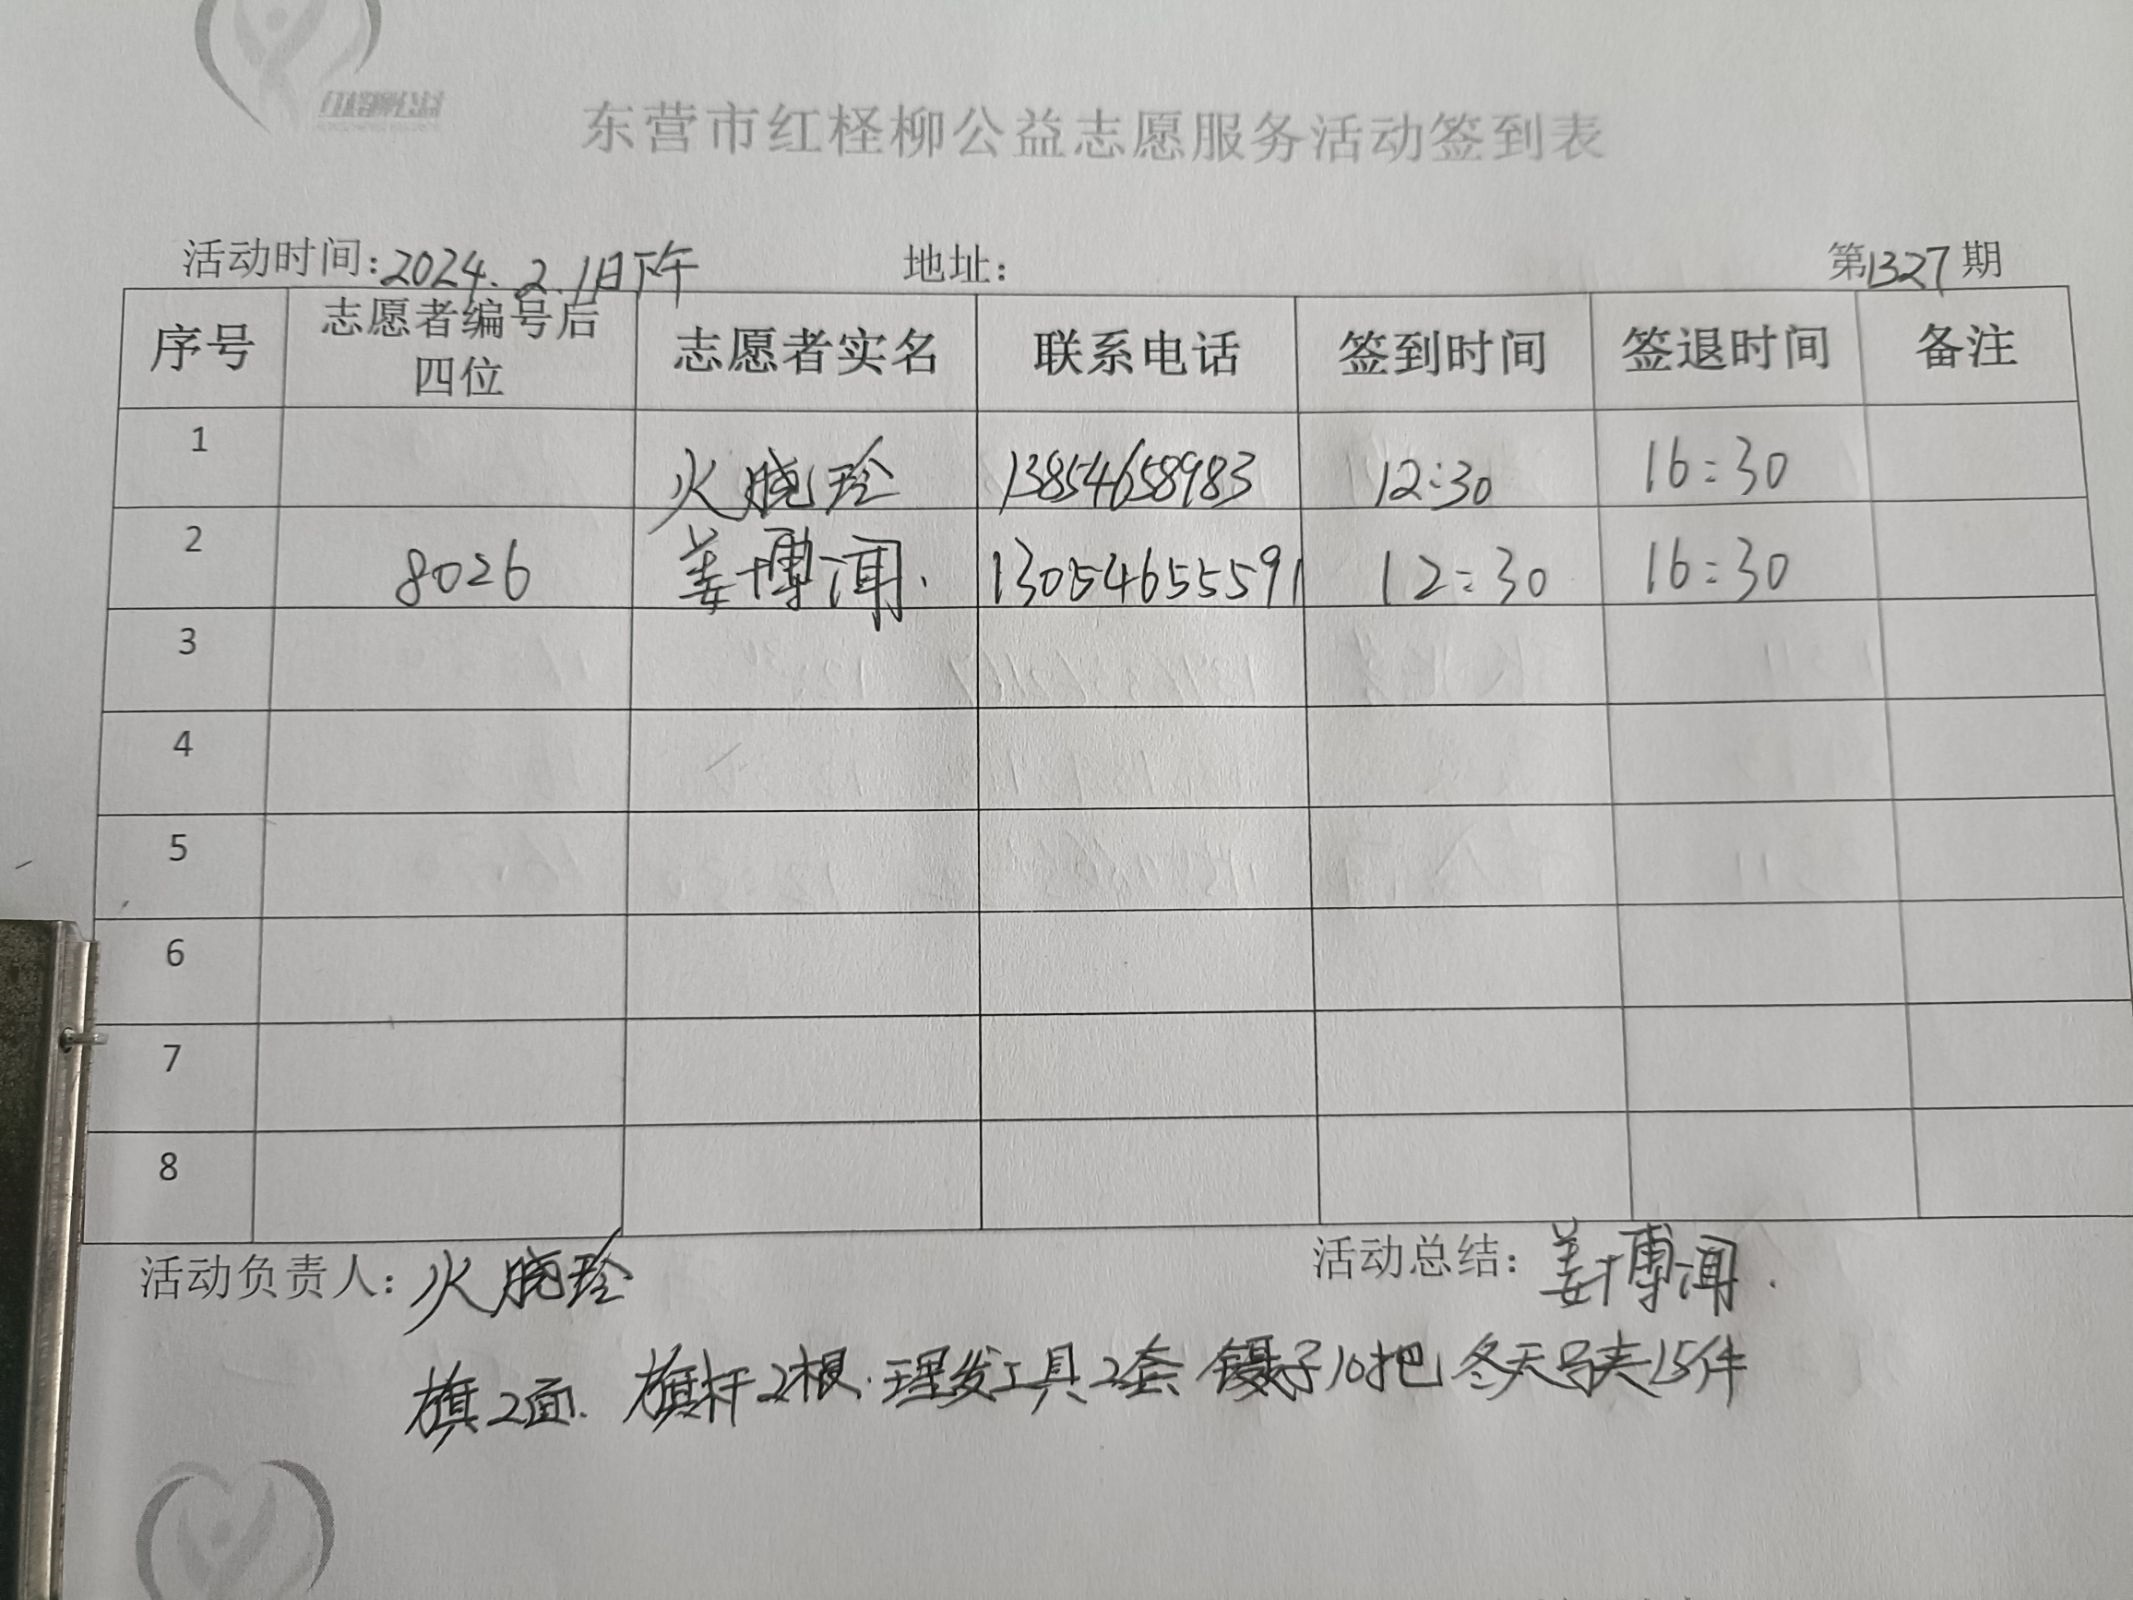 红柽柳公益
东营市红柽柳公益志愿服务活动签到表
活动时间:2024.2.1日下午 地址: 第1327期
序号 志愿者编号后四位 志愿者实名 联系电话 签到时间 签退时间 备注
1 火晓玲 13854658983 12:30 16:30
2 8026 姜博闻. 13054655591 12:30 16:30
3
4
5
6
7
8
活动负责人: 火晓玲 活动总结: 姜博闻.
旗2面. 旗杆2根.理发工具2套 镊子10把 冬天马夹15件